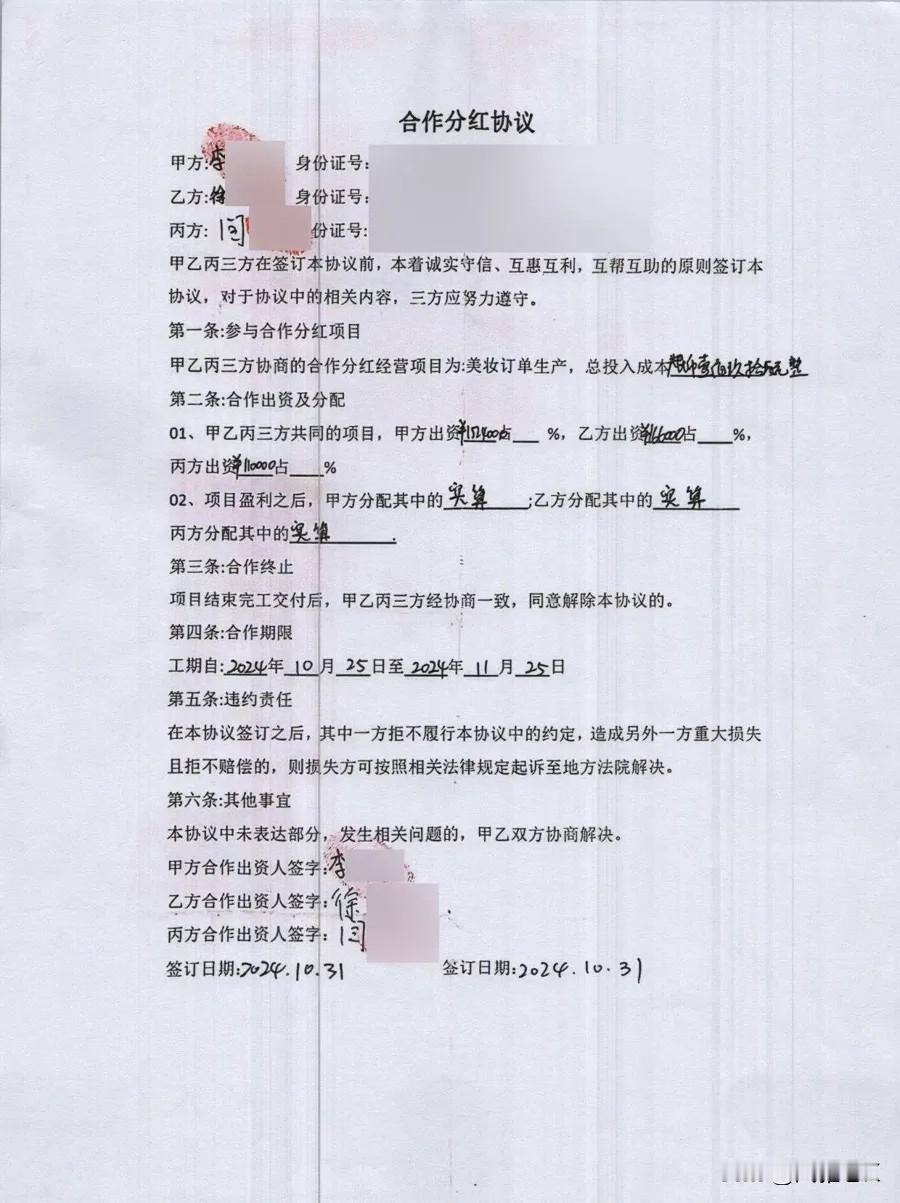 合作分红协议
甲方:李 身份证号:
乙方:徐 身份证号:
丙方: 闫 份证号:
甲乙丙三方在签订本协议前，本着诚实守信、互惠互利，互帮互助的原则签订本
协议，对于协议中的相关内容，三方应努力遵守。
第一条:参与合作分红项目
甲乙丙三方协商的合作分红经营项目为:美妆订单生产，总投入成本
第二条:合作出资及分配
01、甲乙丙三方共同的项目，甲方出资¥152400占___ %，乙方出资¥166000占____%，
丙方出资¥110000占____%
02、项目盈利之后，甲方分配其中的 实算 ;乙方分配其中的 实算
丙方分配其中的 实算 .
第三条:合作终止
项目结束完工交付后，甲乙丙三方经协商一致，同意解除本协议的。
第四条:合作期限
工期自: 2024年 10 月 25 日至 2024年 11 月 25 日
第五条:违约责任
在本协议签订之后，其中一方拒不履行本协议中的约定，造成另外一方重大损失
且拒不赔偿的，则损失方可按照相关法律规定起诉至地方法院解决。
第六条:其他事宜
本协议中未表达部分，发生相关问题的，甲乙双方协商解决。
甲方合作出资人签字:李
乙方合作出资人签字:徐
丙方合作出资人签字: 闫
签订日期:2024.10.31 签订日期:2024.10.31